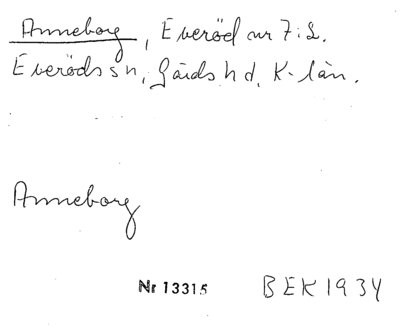 Anneborg, Everöd nr 7:2.
Everöds sn, Gärds hd, K-län.
Anneborg
Nr 13315 BEK 1934